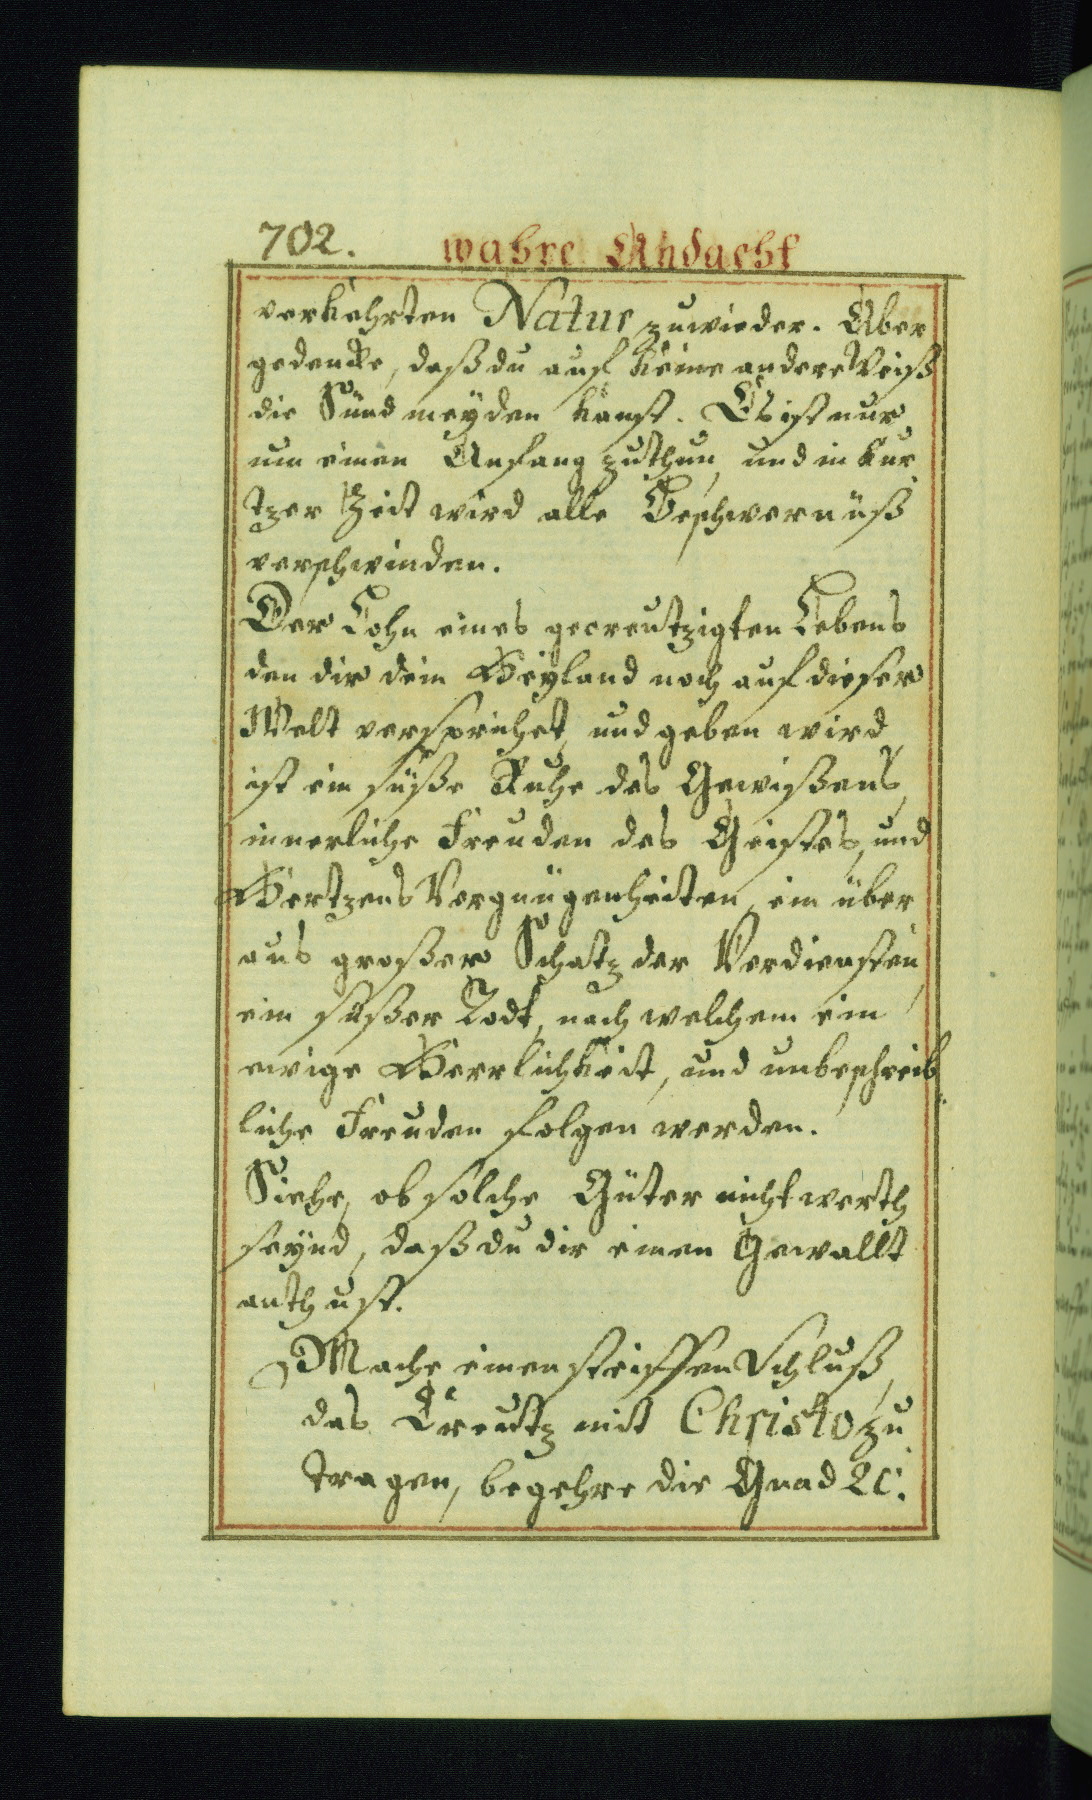 702. wahre Andacht
verkehrten Natur zuwieder. Aber
gedencke, daß du auf keine andere Weiß
die Sünd meyden kanst. Es ist nur
um einen Anfang zuthun, und in kur
tzer Zeit wird alle Beschwernüß
verschwinden.
Der Lohn eines gecreutzigten Lebens
den dir dein Heyland noch auf dieser
Welt versprichet, und geben wird,
ist ein süße Ruhe des Gewißens,
innerliche Freuden des Geistes, und
Hertzens Vergnügenheiten, ein über
aus großer Schatz der Verdiensten
ein süßer Todt, nach welchem ein
ewige Herrlichkeit, und unbeschreib,,
liche Freuden folgen werden.
Siehe, ob solche Güter nicht werth
seynd, daß du dir einen Gewallt
anthust.
Mache einen steiffen Schluß,
das Creutz mit Christo zu
tragen, begehre die Gnad ꝛc.